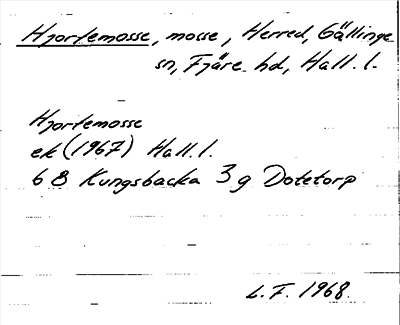 Hjortemosse, mosse, Herred, Gällinge
sn, Fjäre hd, Hall. l.
Hjortemosse
ek (1967) Hall. l.
6 B Kungsbacka 3 g Dotetorp
L. F. 1968.